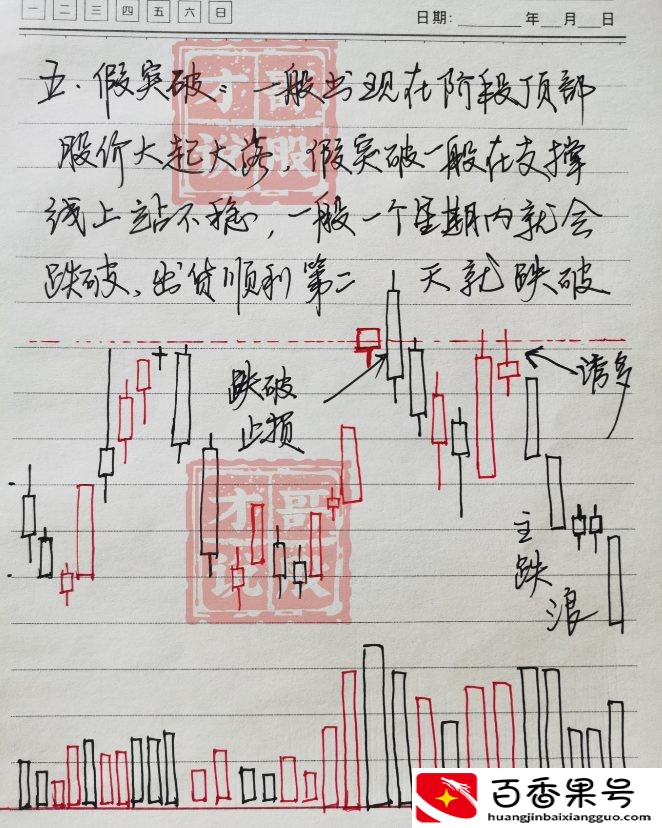 一 二 三 四 五 六 日
日期: 年 月 日
五、假突破：一般出现在阶段顶部
股价大起大落，假突破一般在支撑
线上站不稳，一般一个星期内就会
跌破、出货顺利第二 天就跌破
跌破
止损
诱多
主
跌
浪
才哥
说股
才哥
说股
百香果号
huangjinbaixiangguo.com